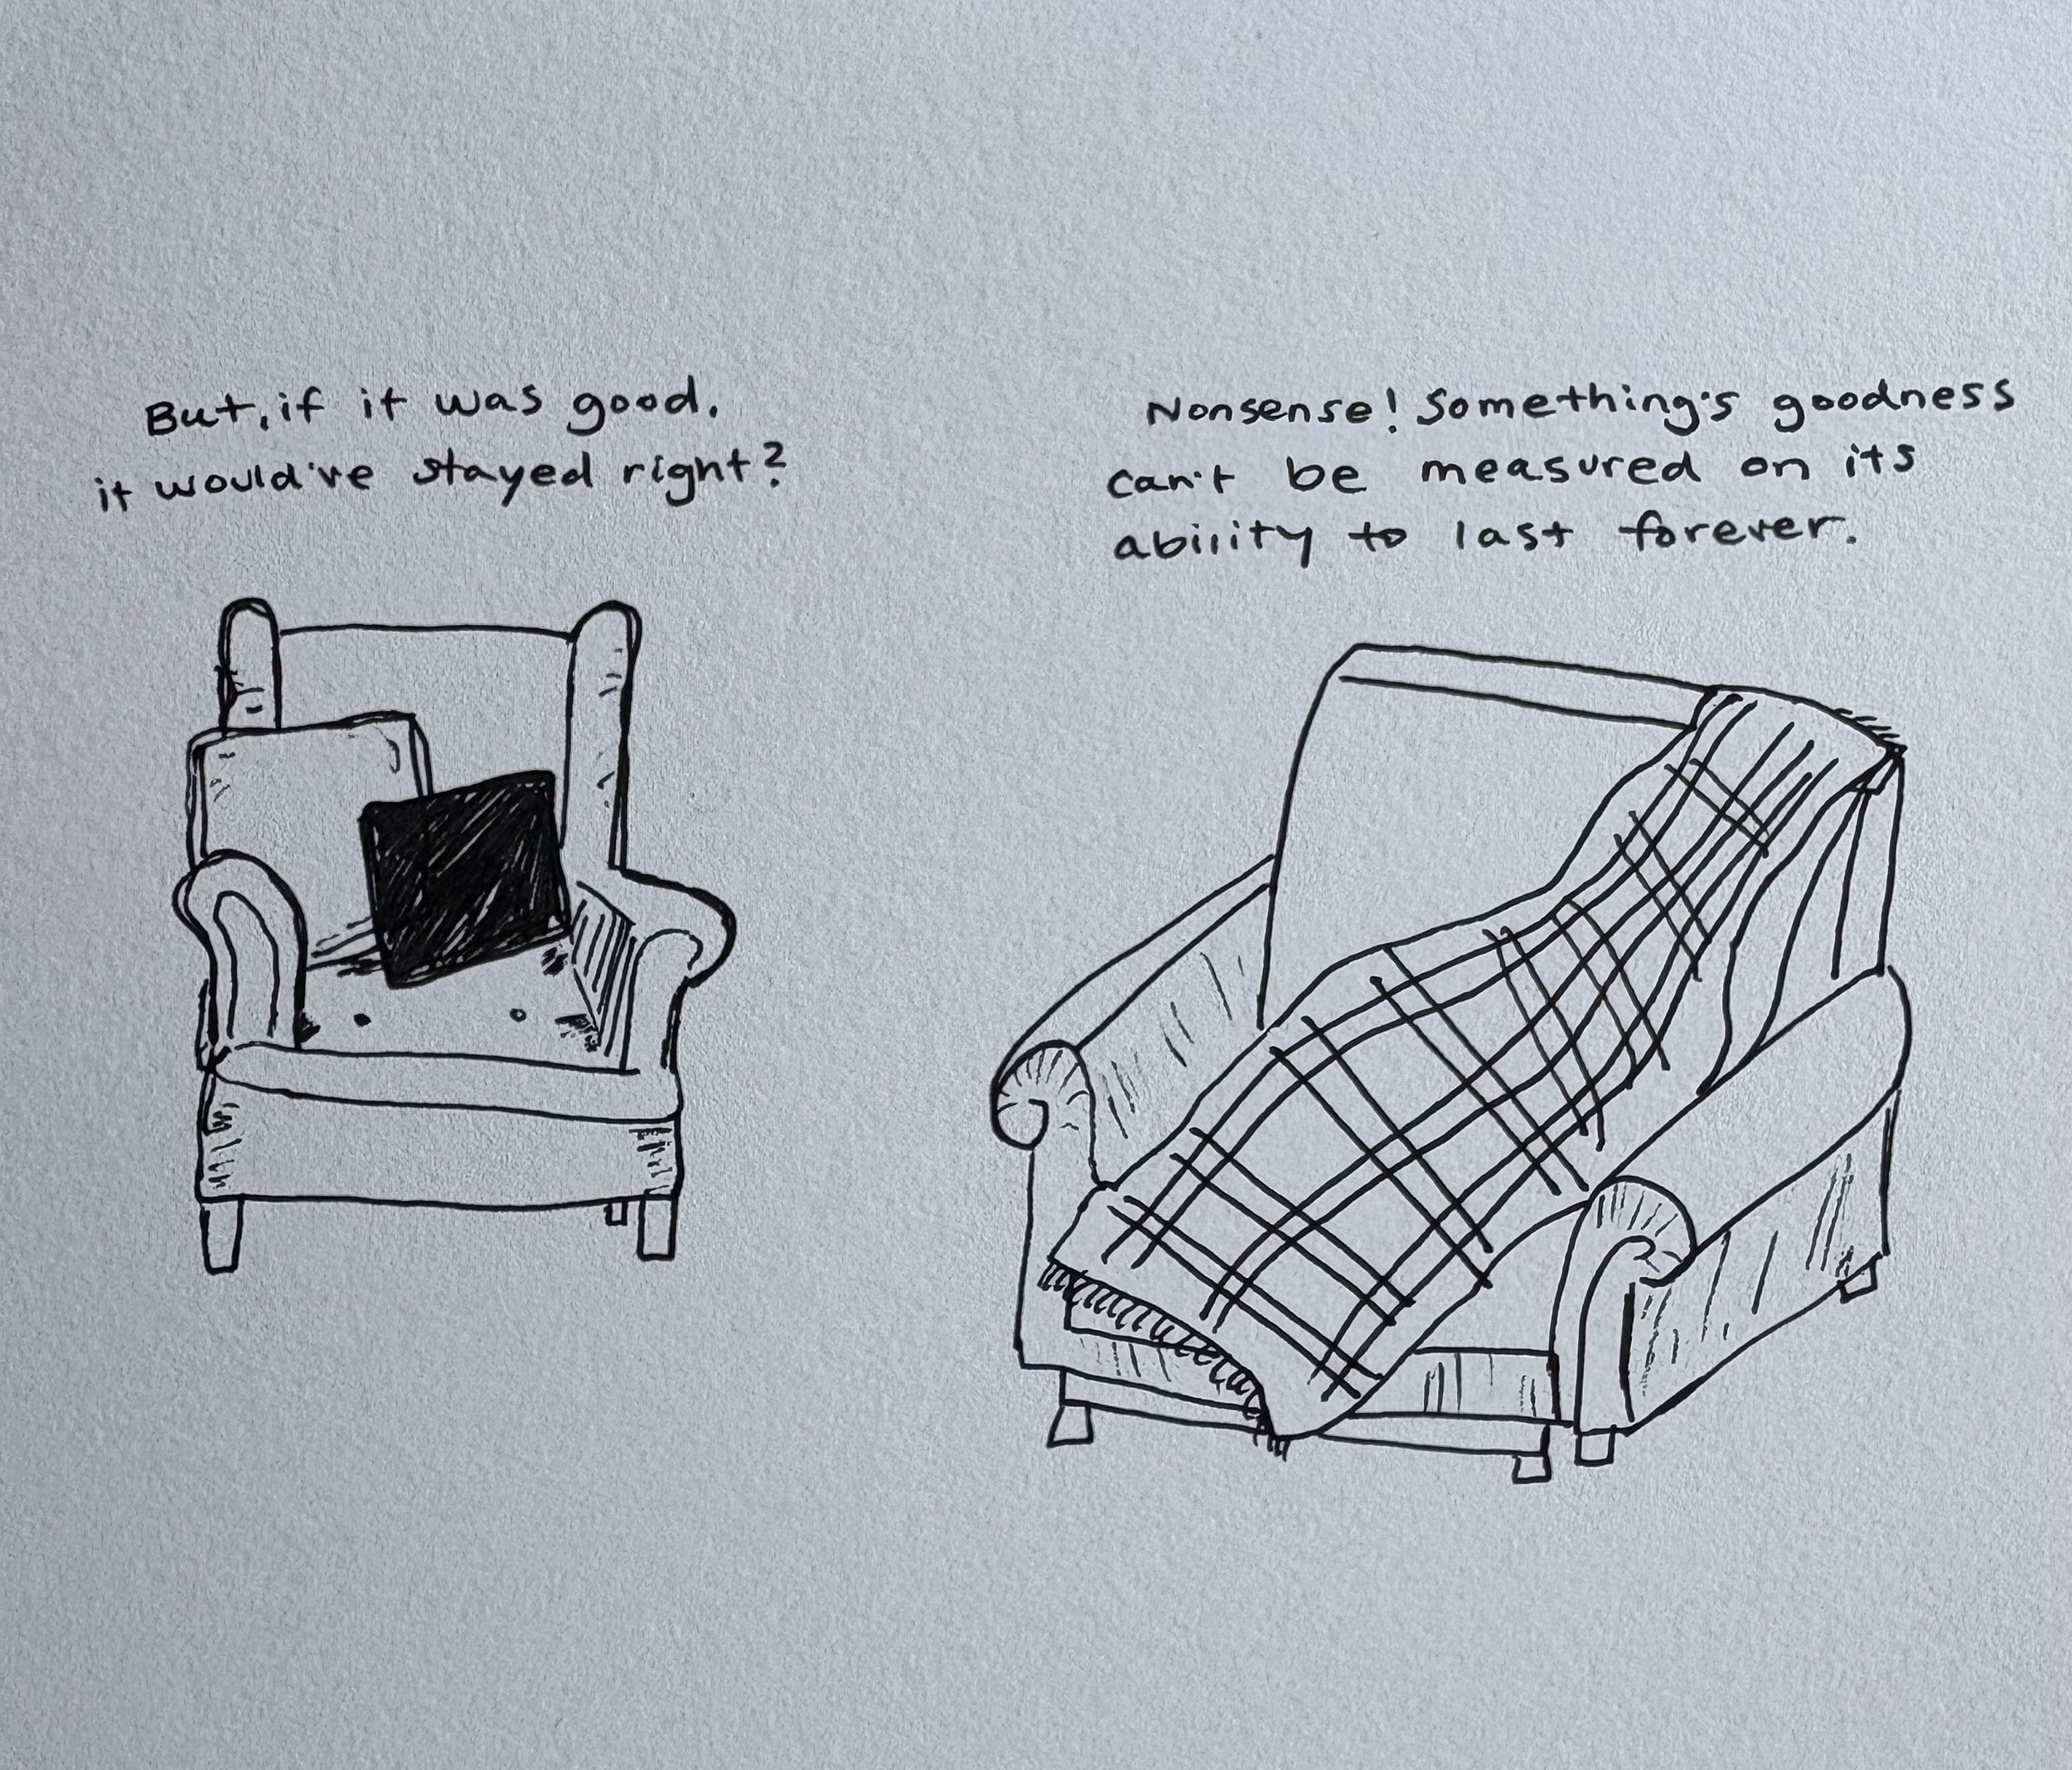 But, if it was good,
it would've stayed right?
Nonsense! Something's goodness
can't be measured on its
ability to last forever.